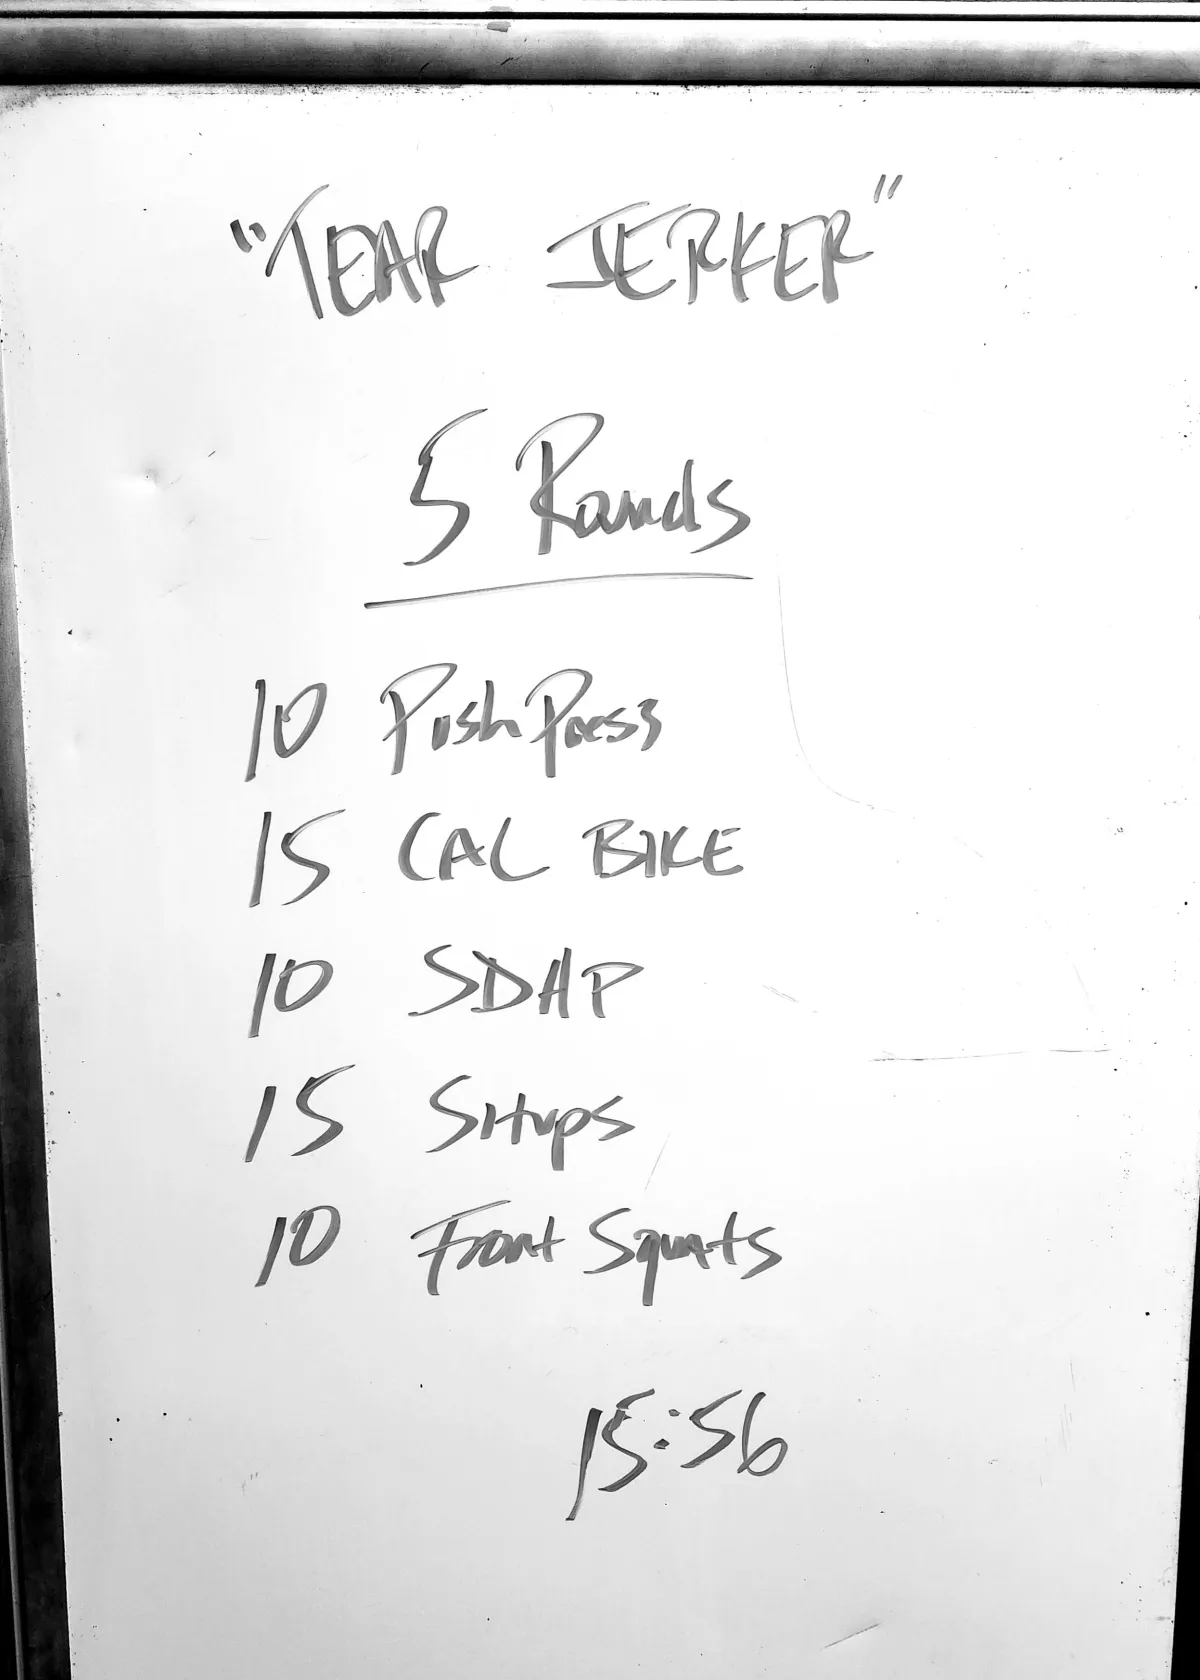 "TEAR JERKER"
5 Rounds
10 Push Press
15 CAL BIKE
10 SDHP
15 Situps
10 Front Squats
15:56